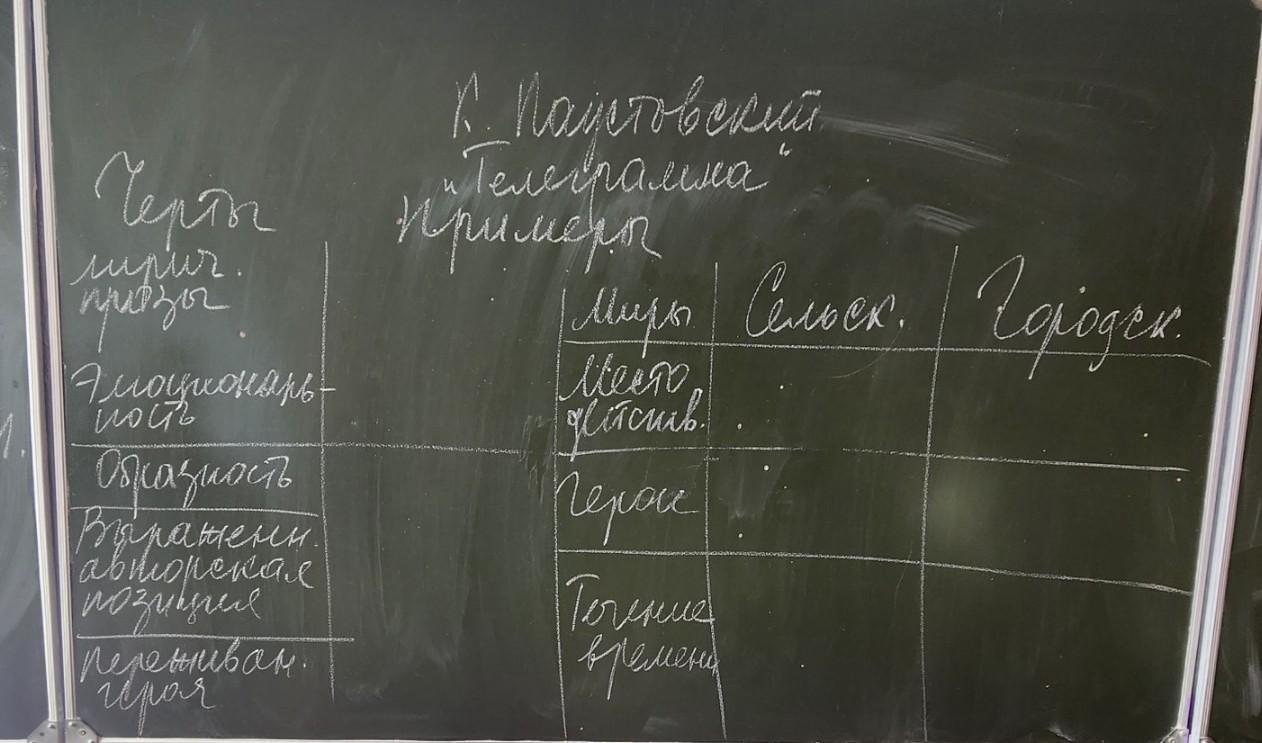 К. Паустовский
„Телеграмма“
Черты
Примеры
лирич.
прозы
Эмоциональ-
ность
Образность
Выраженн.
авторская
позиция
переживан.
героя
Миры
Сельск.
Городск.
Место
действ.
Герои
Течение
времени